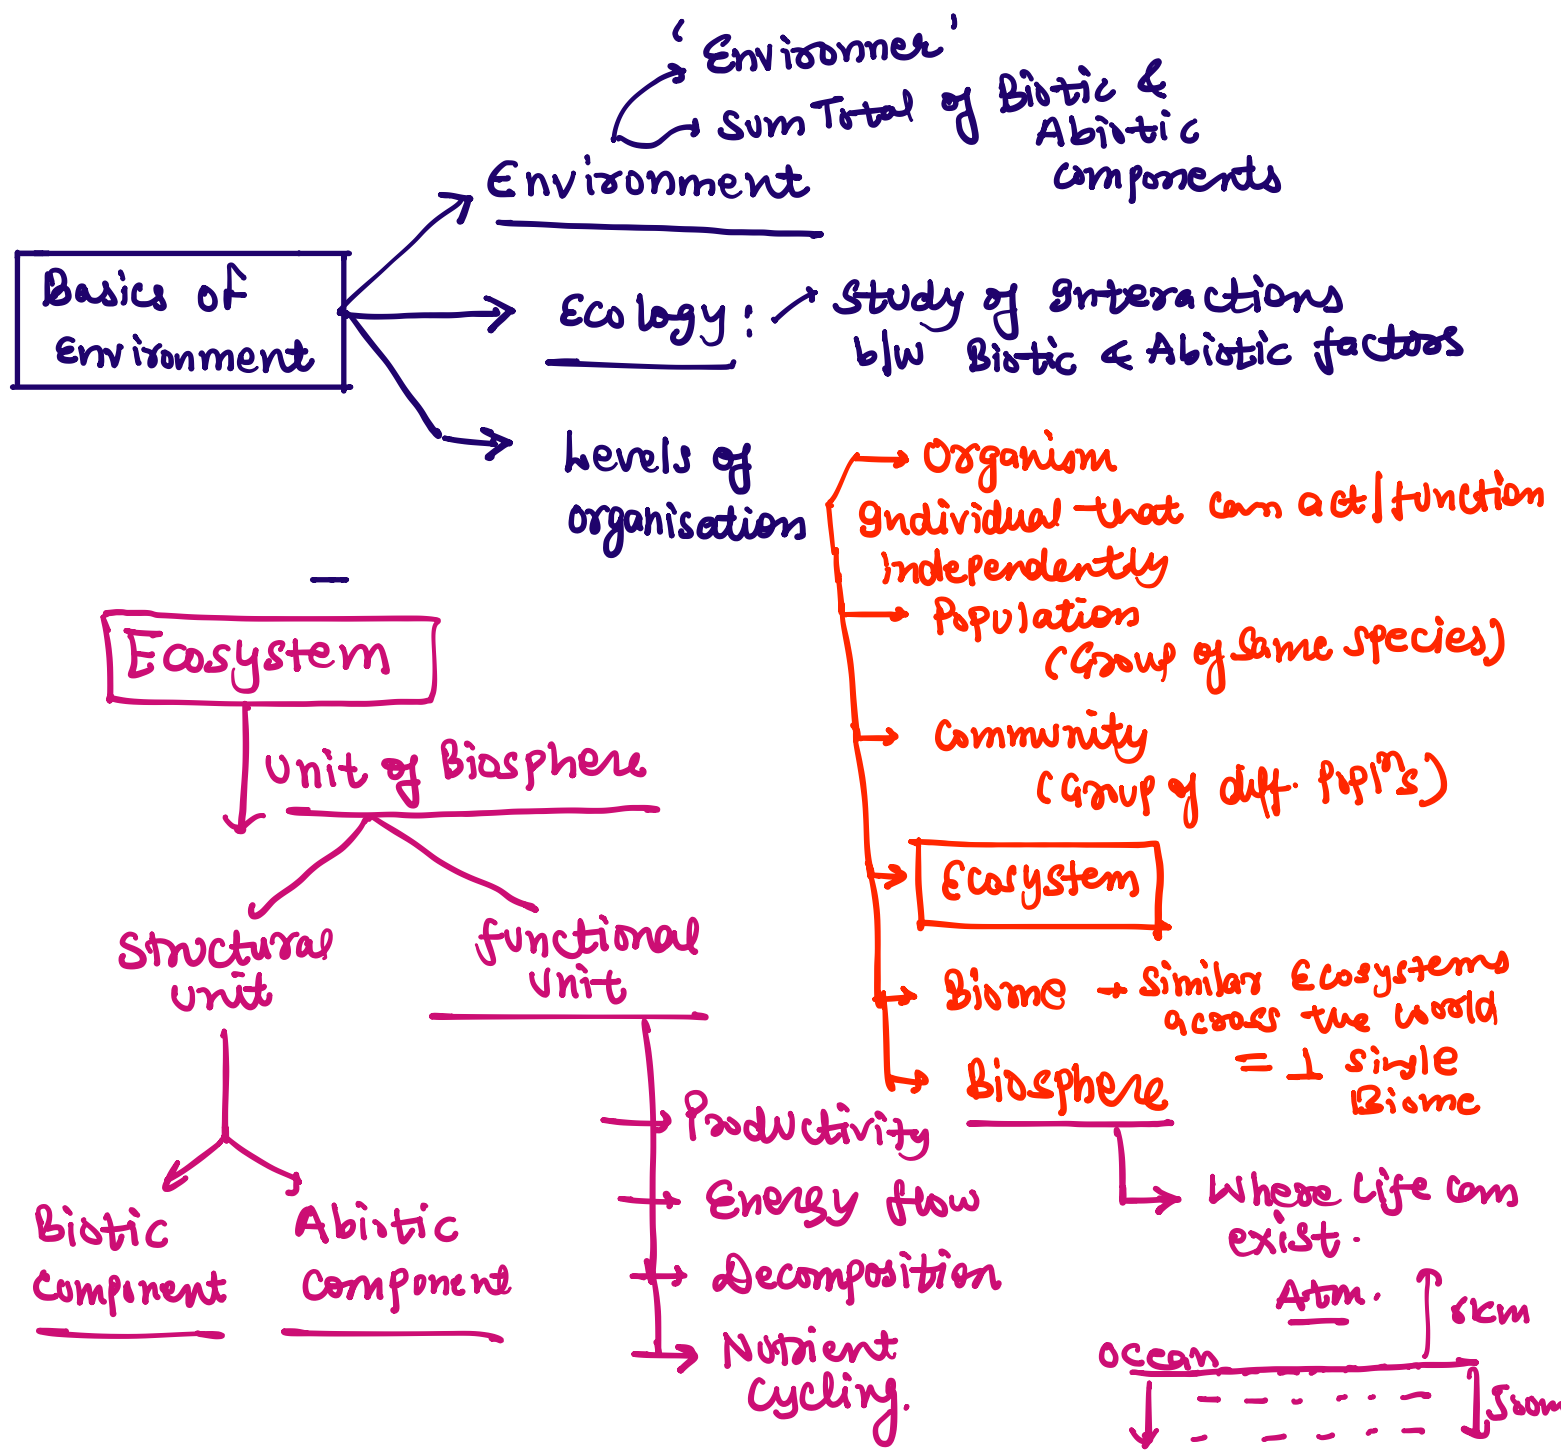 'Environner'
Sum Total of Biotic &
Abiotic
components
Environment
Basics of
Environment
Ecology :
Study of Interactions
b/w Biotic & Abiotic factors
Levels of
organisation
Organism
Individual that can act/function
independently
Population
(Group of same species)
Community
(Group of diff. Popl^ns)
Ecosystem
Biome → Similar Ecosystems
across the world
= 1 single
Biome
Biosphere
Where Life can
exist.
Atm.
Ocean
Ecosystem
Unit of Biosphere
Structural
unit
functional
Unit
Biotic
Component
Abiotic
Component
Productivity
Energy flow
Decomposition
Nutrient
Cycling.